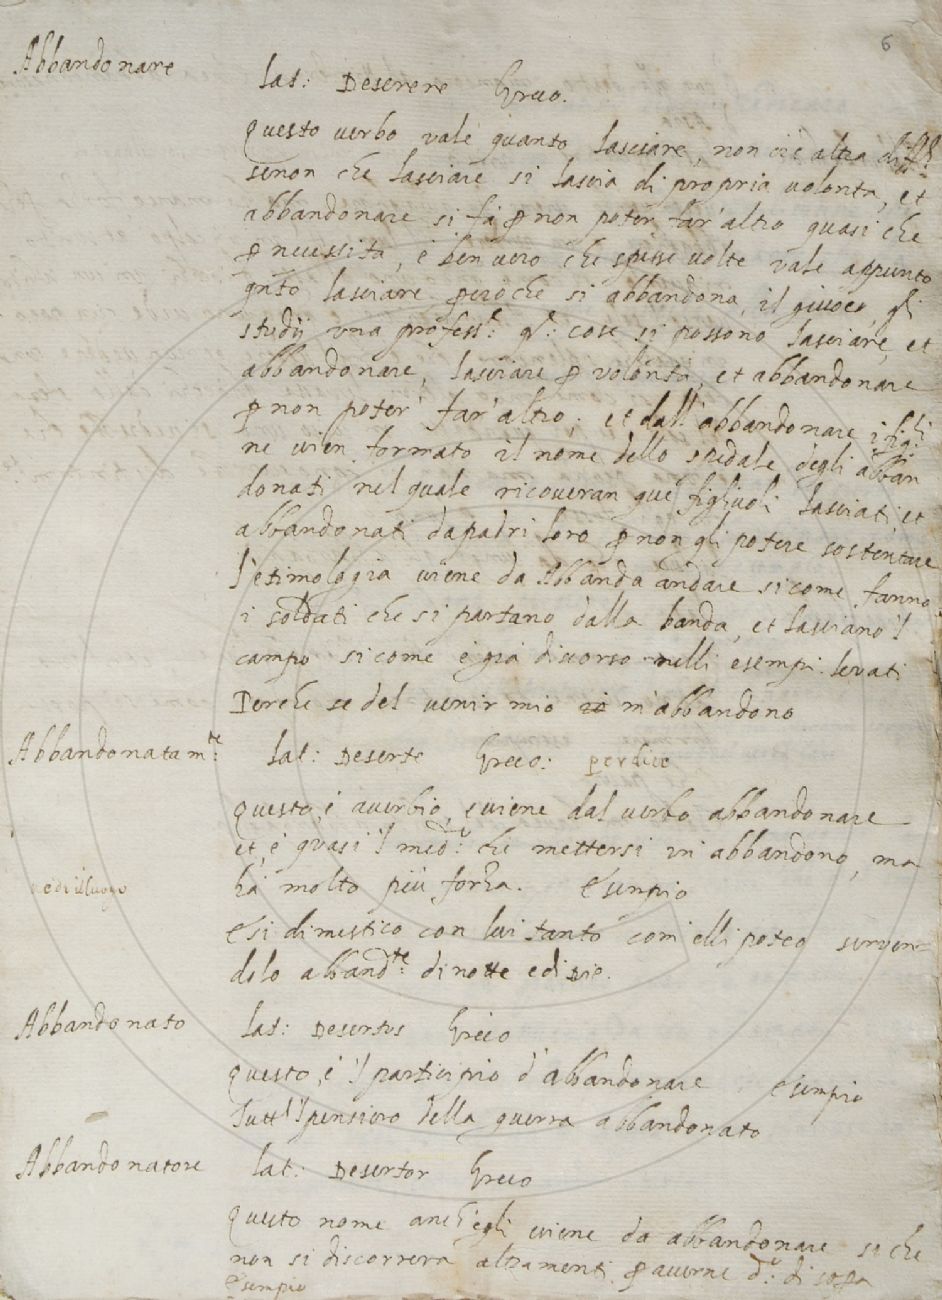 6
Abbandonare
lat: Deserere Greco.
Questo verbo vale quanto lasciare, non c'è altra
senon che lasciare si lascia di propria volontà, et
abbandonare si fà ꝑ non poter far' altro quasi che
ꝑ necessità, è ben vero che spesse volte vale appunto
qnto lasciare ꝑciòche si abbandona il giuoco, gli
studij una profess.e q.e cose si possono lasciare, et
abbandonare, lasciare ꝑ volontà, et abbandonare
ꝑ non poter' far' altro; et dall' abbandonare i figli
ne vien formato il nome dello spedale degli abban
donati nel quale ricoveran que' figliuoli lasciati, et
abbandonati da padri loro ꝑ non gli potere sostentare
l'etimologia viene da Abbanda andare sicome fanno
i soldati che si partano dalla banda, et lasciano 'l
campo sicome è già discorso nelli esempi levati
Perche se del venir mio m'abbandono
Abbandonatam.te
lat: Deserte Greco:
Questo, è averbio, e viene dal verbo abbandonare
et, è quasi 'l med.o che mettersi in abbandono, ma
hà molto più forza. Esempio
vedi il luogo
E si dimestico con lui tanto com' elli poteo serven=
dolo abband.te di notte e di die.
Abbandonato
lat: Desertus Greco
Questo, è 'l participio d'abbandonare Esempio
Tutt'l pensiero della guerra abbandonato
Abbandonatore
lat: Desertor Greco
Questo nome anch'egli viene da abbandonare si che
non si discorrerà altramenti ꝑ averne d.o di sopra
Esempio